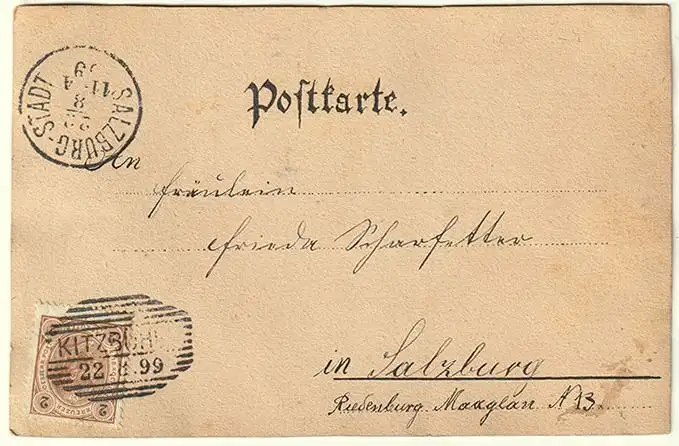 SALZBURG-STADT
22 8
11-A
99
Postkarte.
An
Fräulein
Frieda Scharfetter
KITZBÜH
22 8.99
2 KREUZER 2
in Salzburg
Riedenburg. Maxglan N 13.